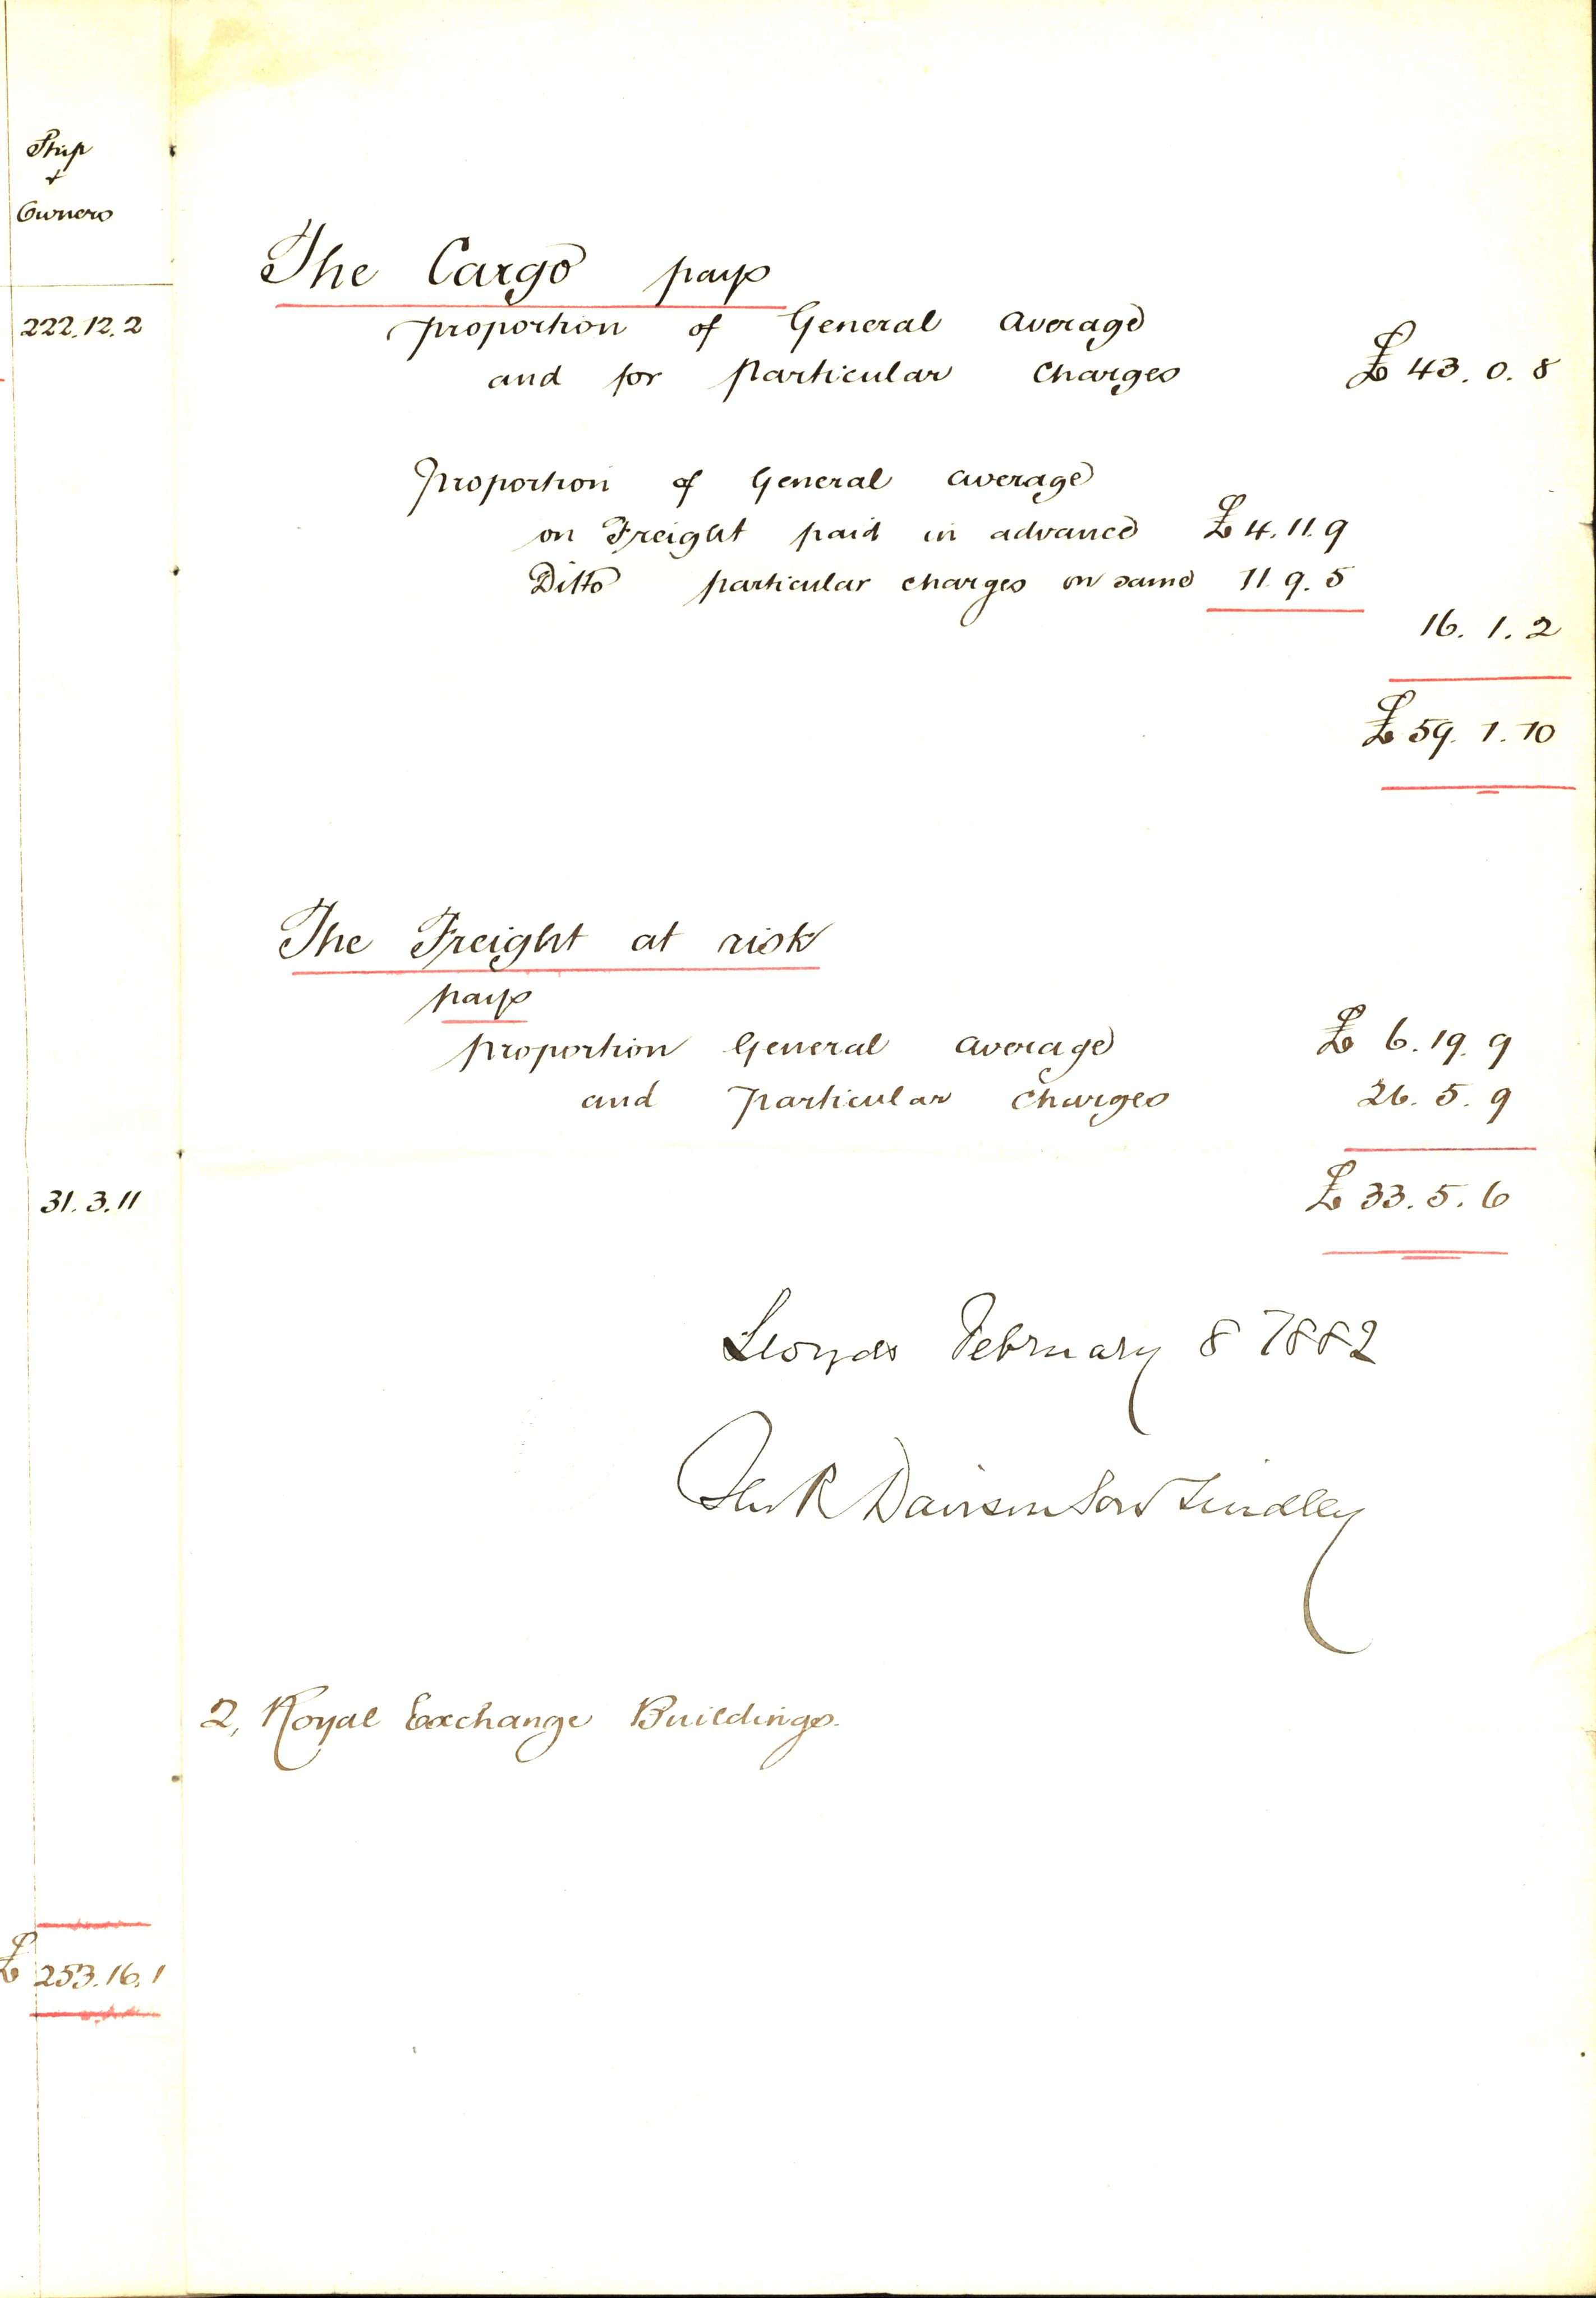 Ship
+
Owners
222.12.2
31.3.11
£ 253.16.1
The Cargo pays
proportion of General average
and for particular charges £ 43. 0. 8
Proportion of General average
on Freight paid in advance £ 4. 11. 9
Ditto particular charges on same 11. 9. 5
16. 1. 2
£ 59. 1. 10
The Freight at risk
pays
proportion General average £ 6. 19. 9
and particular charges 26. 5. 9
£ 33. 5. 6
Lloyds February 8 1882
R Davison Son Lindley
2, Royal Exchange Buildings.